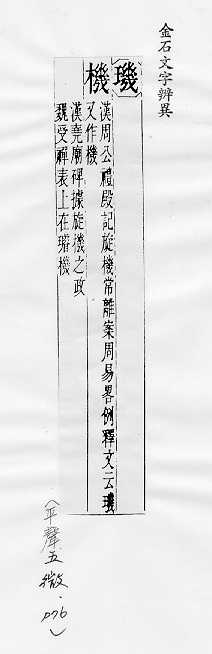 金石文字辨異
璣
機
漢周公禮殿記旋機常離案周易畧例釋文云璣
又作機
漢堯廟碑據旋機之政
魏受禪表上在璿機
(平聲·五微·P76)